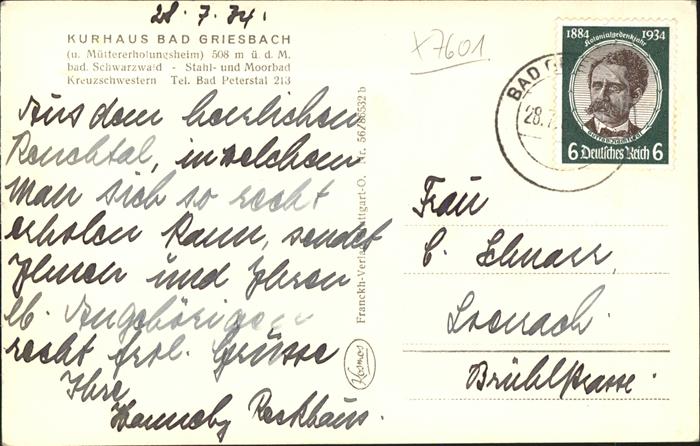 28. 7. 34.
KURHAUS BAD GRIESBACH
(u. Müttererholungsheim) 508 m ü. d. M.
bad. Schwarzwald - Stahl- und Moorbad
Kreuzschwestern Tel. Bad Peterstal 213
Aus dem herrlichen
Renchtal, in welchem
man sich so recht
erholen kann, sendet
Ihnen und Ihren
lb. Angehörigen
recht frdl. Grüsse
Ihre
Franckh-Verlag Stuttgart-O. Nr. 56/86532 b
Kosmos
X7601
BAD
28.7.
1884 1934
Kolonialgedenkjahr
6 Deutsches Reich 6
Frau
C. Schnarr,
Loerrach
Brühlstrasse.